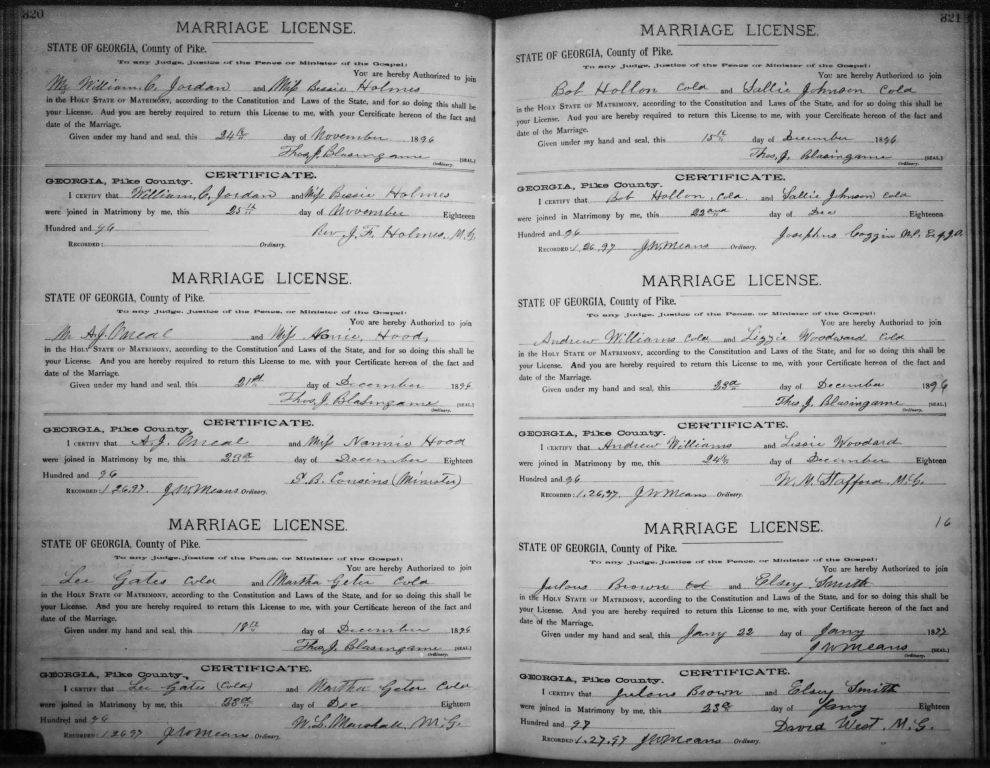 320
MARRIAGE LICENSE.
STATE OF GEORGIA, County of Pike.
To any Judge, Justice of the Peace, or Minister of the Gospel:
You are hereby Authorized to join
Mr William C. Jordan and Miss Bessie Holmes
in the HOLY STATE OF MATRIMONY, according to the Constitution and Laws of the State, and for so doing this shall be
your License. And you are hereby required to return this License to me, with your Certificate hereon of the fact and
date of the Marriage.
Given under my hand and seal, this 24th day of November 1896
Thos J. Blasingame [SEAL.]
Ordinary.
CERTIFICATE.
GEORGIA, Pike County.
I CERTIFY that William C. Jordan and Miss Bessie Holmes
were joined in Matrimony by me, this 25th day of November Eighteen
Hundred and 96 Rev J. F. Holmes. M.G.
RECORDED: Ordinary.
MARRIAGE LICENSE.
STATE OF GEORGIA, County of Pike.
To any Judge, Justice of the Peace, or Minister of the Gospel:
You are hereby Authorized to join
Mr A. J. Oneal and Miss Hood,
in the HOLY STATE OF MATRIMONY, according to the Constitution and Laws of the State, and for so doing this shall be
your License. And you are hereby required to return this License to me, with your Certificate hereon of the fact and
date of the Marriage.
Given under my hand and seal, this 21st day of December 1896
Thos J. Blasingame [SEAL.]
Ordinary.
CERTIFICATE.
GEORGIA, Pike County.
I CERTIFY that A. J. Oneal and Miss Nannie Hood
were joined in Matrimony by me, this 23d day of December Eighteen
Hundred and 96 S. B. Cousins (Minister)
RECORDED: 1.26.97 J.W. Means Ordinary.
MARRIAGE LICENSE.
STATE OF GEORGIA, County of Pike.
To any Judge, Justice of the Peace, or Minister of the Gospel:
You are hereby Authorized to join
Lee Gates Cold and Martha Geter Cold
in the HOLY STATE OF MATRIMONY, according to the Constitution and Laws of the State, and for so doing this shall be
your License. And you are hereby required to return this License to me, with your Certificate hereon of the fact and
date of the Marriage.
Given under my hand and seal, this 19th day of December 1896
Thos J. Blasingame [SEAL.]
Ordinary.
CERTIFICATE.
GEORGIA, Pike County.
I CERTIFY that Lee Gates (Cold) and Martha Geter Cold
were joined in Matrimony by me, this day of Dec Eighteen
Hundred and 96 W. L. Marshall. M.G.
RECORDED: 1.26.97 J.W. Means Ordinary.
321
MARRIAGE LICENSE.
STATE OF GEORGIA, County of Pike.
To any Judge, Justice of the Peace, or Minister of the Gospel:
You are hereby Authorized to join
Bob Hollon Cold and Sallie Johnson Cold
in the HOLY STATE OF MATRIMONY, according to the Constitution and Laws of the State, and for so doing this shall be
your License. And you are hereby required to return this License to me, with your Certificate hereon of the fact and
date of the Marriage.
Given under my hand and seal, this 15th day of December 1896
Thos, J. Blasingame [SEAL.]
Ordinary.
CERTIFICATE.
GEORGIA, Pike County.
I CERTIFY that Bob Hollon, Cold and Sallie Johnson Cold
were joined in Matrimony by me, this 22nd day of Dec Eighteen
Hundred and 96 Josephus Coggin
RECORDED: 1.26.97 J.W. Means Ordinary.
MARRIAGE LICENSE.
STATE OF GEORGIA, County of Pike.
To any Judge, Justice of the Peace, or Minister of the Gospel:
You are hereby Authorized to join
Andrew Williams Cold and Lizzie Woodward Cold
in the HOLY STATE OF MATRIMONY, according to the Constitution and Laws of the State, and for so doing this shall be
your License. And you are hereby required to return this License to me, with your Certificate hereon of the fact and
date of the Marriage.
Given under my hand and seal, this 23d day of December 1896
Thos J. Blasingame [SEAL.]
Ordinary.
CERTIFICATE.
GEORGIA, Pike County.
I CERTIFY that Andrew Williams and Lissie Woodard
were joined in Matrimony by me, this 24th day of December Eighteen
Hundred and 96 W. M. Stafford. M.G.
RECORDED: 1.26.97 J.W. Means Ordinary.
16
MARRIAGE LICENSE.
STATE OF GEORGIA, County of Pike.
To any Judge, Justice of the Peace, or Minister of the Gospel:
You are hereby Authorized to join
Julous Brown cd and Elsey Smith
in the HOLY STATE OF MATRIMONY, according to the Constitution and Laws of the State, and for so doing this shall be
your License. And you are hereby required to return this License to me, with your Certificate hereon of the fact and
date of the Marriage.
Given under my hand and seal, this Jany 22 day of Jany 1897
J.W. Means [SEAL.]
Ordinary.
CERTIFICATE.
GEORGIA, Pike County.
I CERTIFY that Julous Brown and Elsey Smith
were joined in Matrimony by me, this 23d day of Jany Eighteen
Hundred and 97 David West. M.G.
RECORDED: 1.27.97 J.W. Means Ordinary.